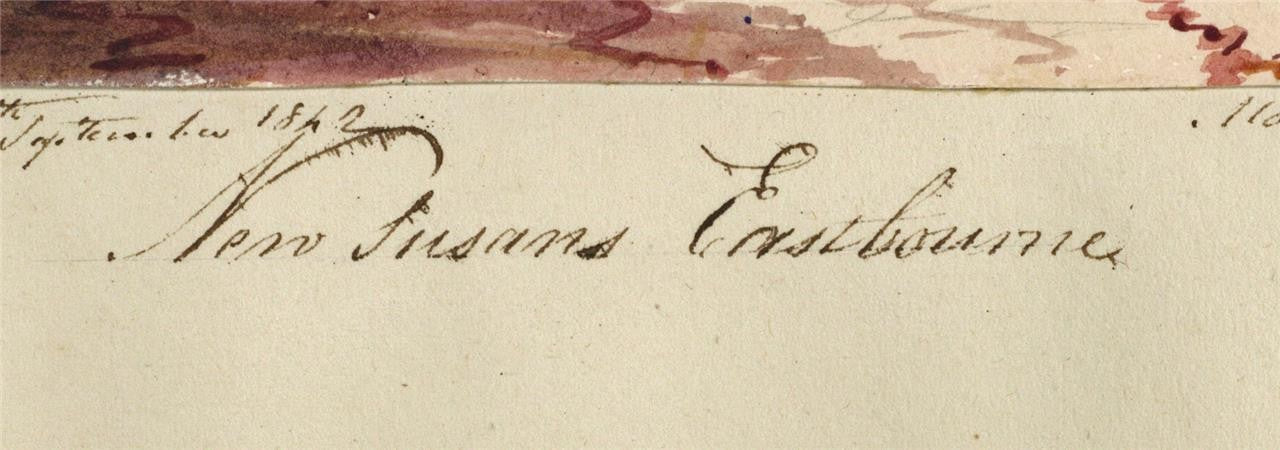 th September 1842
New Susans Eastbourne